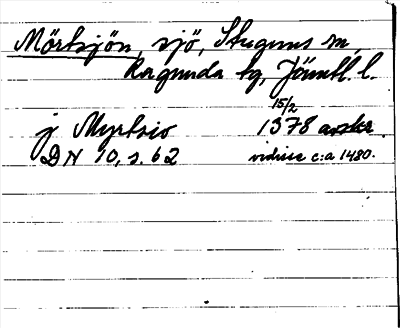 Mörtsjön, sjö, Stuguns sn,
Ragunda tg, Jämtl. l.
j Myrtsio 15/2 1378 avskr.
DN 10, s. 62 vidisse c:a 1480.